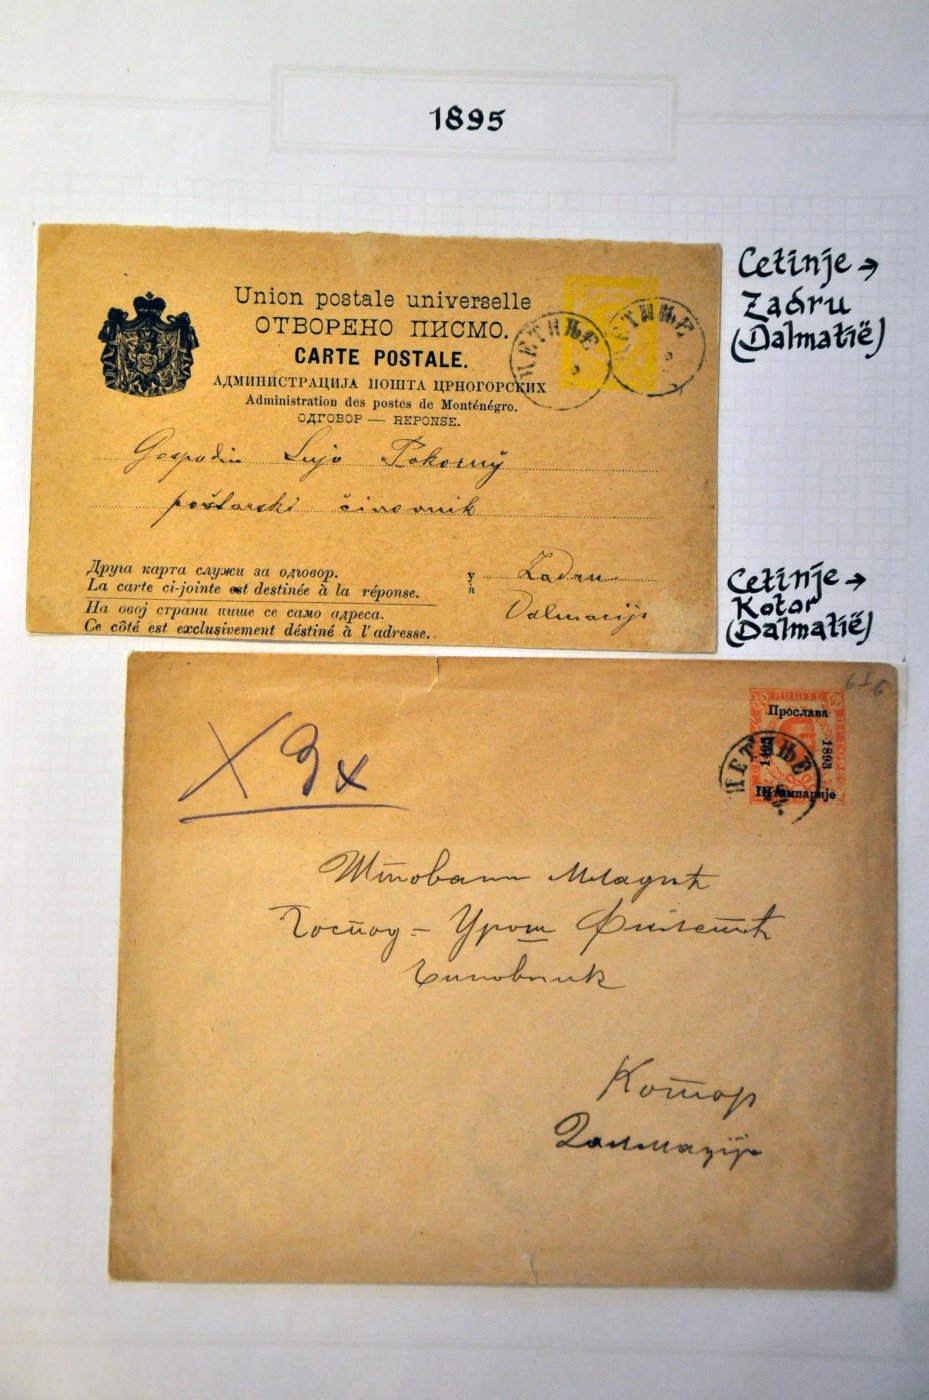 1895
Cetinje →
Zadru
(Dalmatië)
Union postale universelle
ОТВОРЕНО ПИСМО.
CARTE POSTALE.
АДМИНИСТРАЦИЈА ПОШТА ЦРНОГОРСКИХ
Administration des postes de Monténégro.
ОДГОВОР — REPONSE.
ЦЕТИЊЕ
ЦЕТИЊЕ
Gospodin Lujo Pokorny
poštarski činovnik
Друга карта служи за одговор.
La carte ci-jointe est destinée à la réponse.
На овој страни пише се само адреса.
Ce côté est exclusivement déstiné à l'adresse.
у
à
Zadru
Dalmacija
Cetinje →
Kotor
(Dalmatië)
Прослава
1493
1893
Штампарије
ЦЕТИЊЕ
Штовани Младић
Господ- Урош
Чиновник
Котор
Далмација